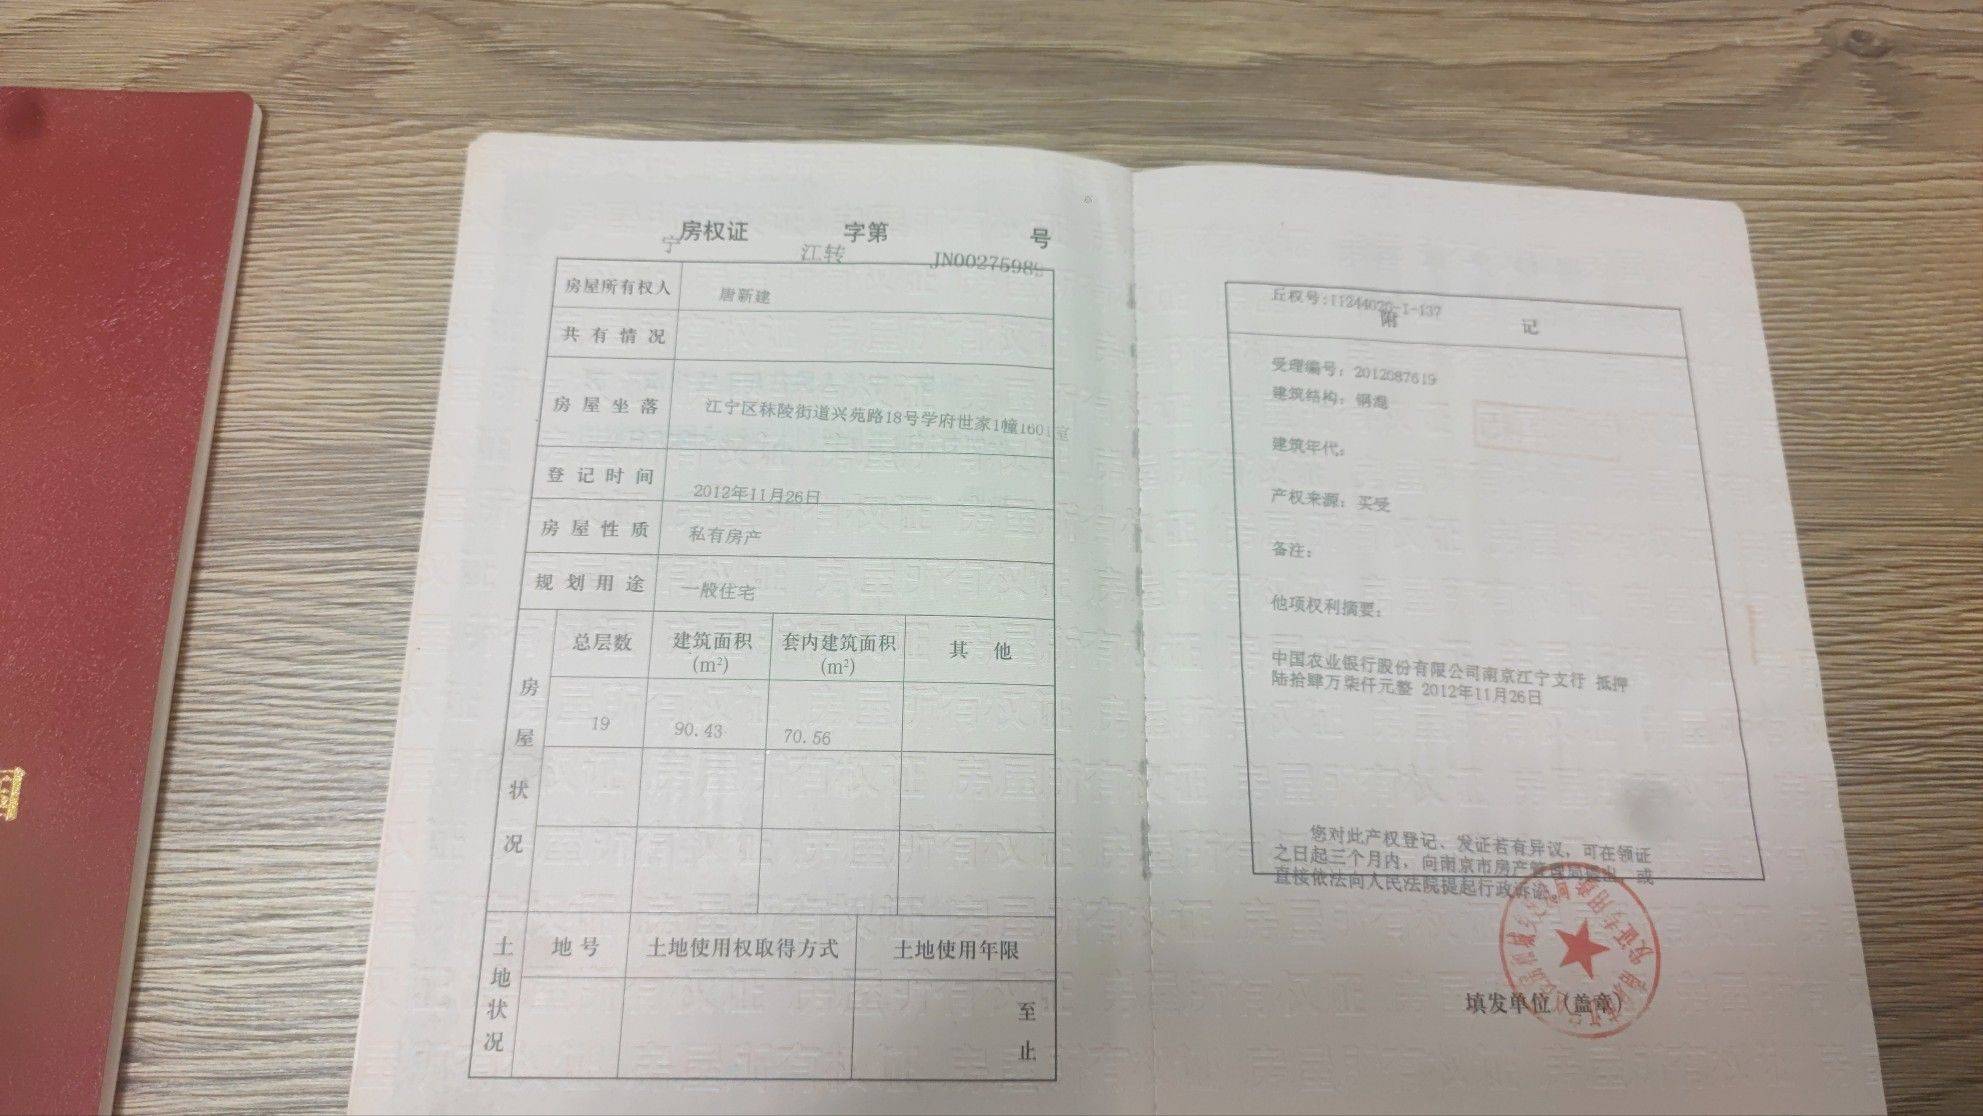 房权证 字第 号
宁 江转 JN00275989
房屋所有权人 唐新建
共有情况
房屋坐落 江宁区秣陵街道兴苑路18号学府世家1幢1601室
登记时间 2012年11月26日
房屋性质 私有房产
规划用途 一般住宅
房屋状况
总层数 建筑面积(m²) 套内建筑面积(m²) 其他
19 90.43 70.56
土地状况
地号 土地使用权取得方式 土地使用年限
至
止
丘权号:11244020-1-137
附 记
受理编号：2012087619
建筑结构：钢混
建筑年代：
产权来源：买受
备注：
他项权利摘要：
中国农业银行股份有限公司南京江宁支行 抵押
陆拾肆万柒仟元整 2012年11月26日
您对此产权登记、发证若有异议，可在领证
之日起三个月内，向南京市房产管理局提出，或
直接依法向人民法院提起行政诉讼。
发证专用章
填发单位（盖章）